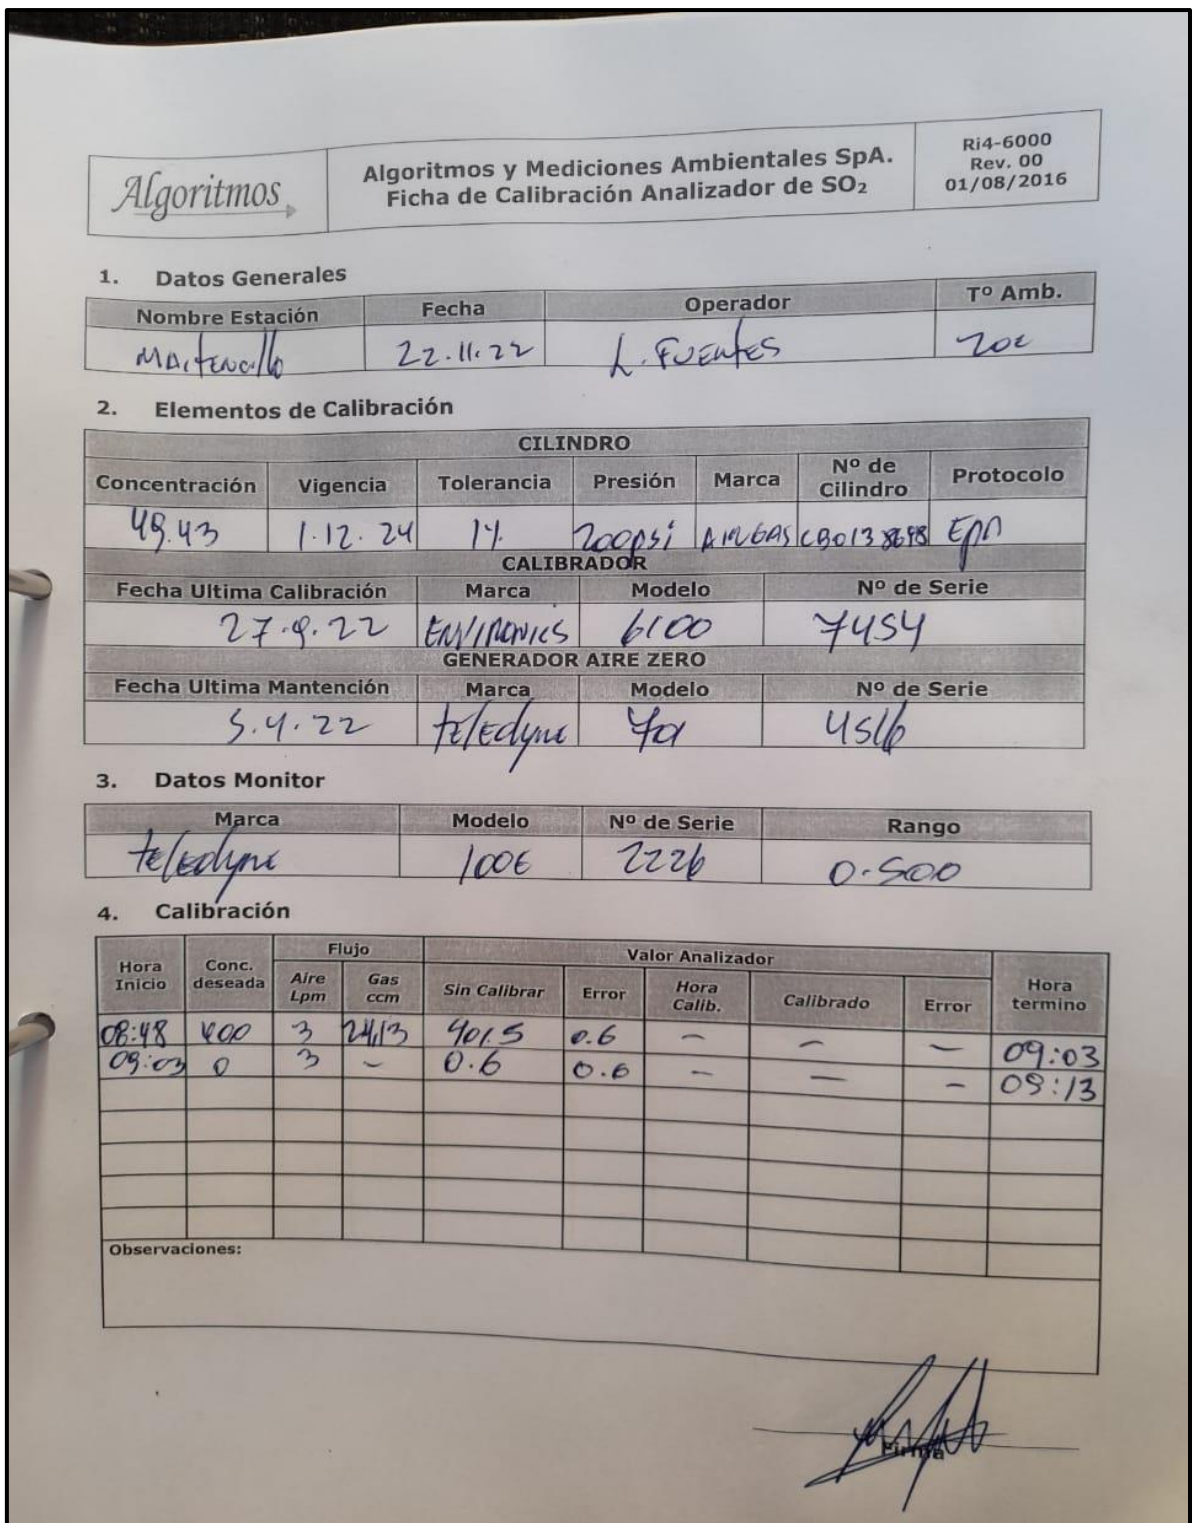 Algoritmos
Algoritmos y Mediciones Ambientales SpA.
Ficha de Calibración Analizador de SO₂
Ri4-6000
Rev. 00
01/08/2016
1. Datos Generales
Nombre Estación Fecha Operador Tº Amb.
Maitencillo 22.11.22 L. FUENTES
2. Elementos de Calibración
CILINDRO
Concentración Vigencia Tolerancia Presión Marca Nº de Cilindro Protocolo
49.43 1.12.24 1% 200psi AIRGAS EPA
CALIBRADOR
Fecha Ultima Calibración Marca Modelo Nº de Serie
27.9.22 ENVIRONICS 6100 7454
GENERADOR AIRE ZERO
Fecha Ultima Mantención Marca Modelo Nº de Serie
5.4.22 teledyne 4516
3. Datos Monitor
Marca Modelo Nº de Serie Rango
teledyne 100E 2226 0-500
4. Calibración
Hora Inicio Conc. deseada Flujo Valor Analizador Hora termino
Aire Lpm Gas ccm Sin Calibrar Error Hora Calib. Calibrado Error
08:48 400 3 24,13 401.5 0.6 - - - 09:03
09:03 0 3 - 0.6 0.6 - - - 09:13
Observaciones:
Firma